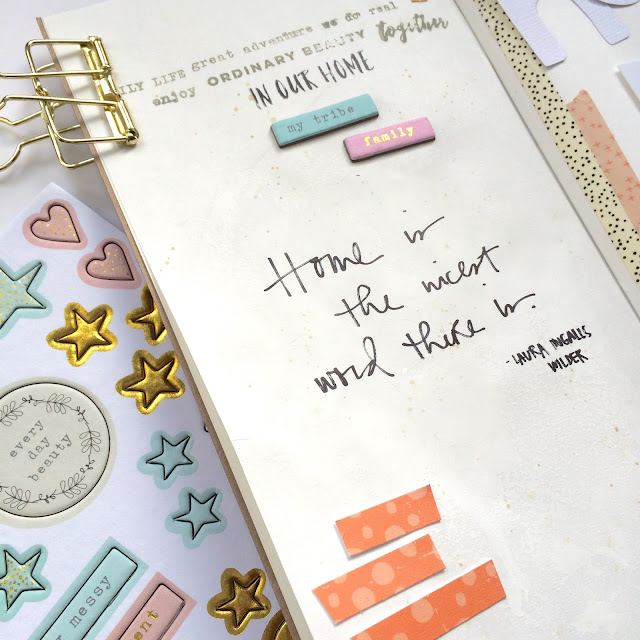 LIFE Great adventure we do real
enjoy ORDINARY BEAUTY together
IN OUR HOME
my tribe
family
Home is
the nicest
word there is.
-LAURA INGALLS
WILDER
every
day
beauty
messy